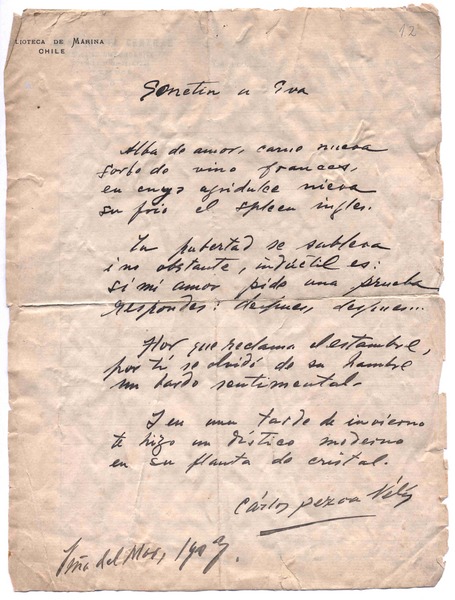 12
BIOTECA DE MARINA
CHILE
Sonetin a Eva
Alba de amor, carne nueva
sorbo de vino frances,
en cuyo agridulce nieva
su frio el spleen ingles.
Tu pubertad se subleva
i no obstante, indúctil es:
si mi amor pide una prueba
respondes: despues, despues...
Flor que reclama el estambre,
por ti se olvidó de su hambre
un bardo sentimental.
I en una tarde de invierno
te hizo un dístico moderno
en su flauta de cristal.
Cárlos Pezoa Véliz
Viña del Mar,